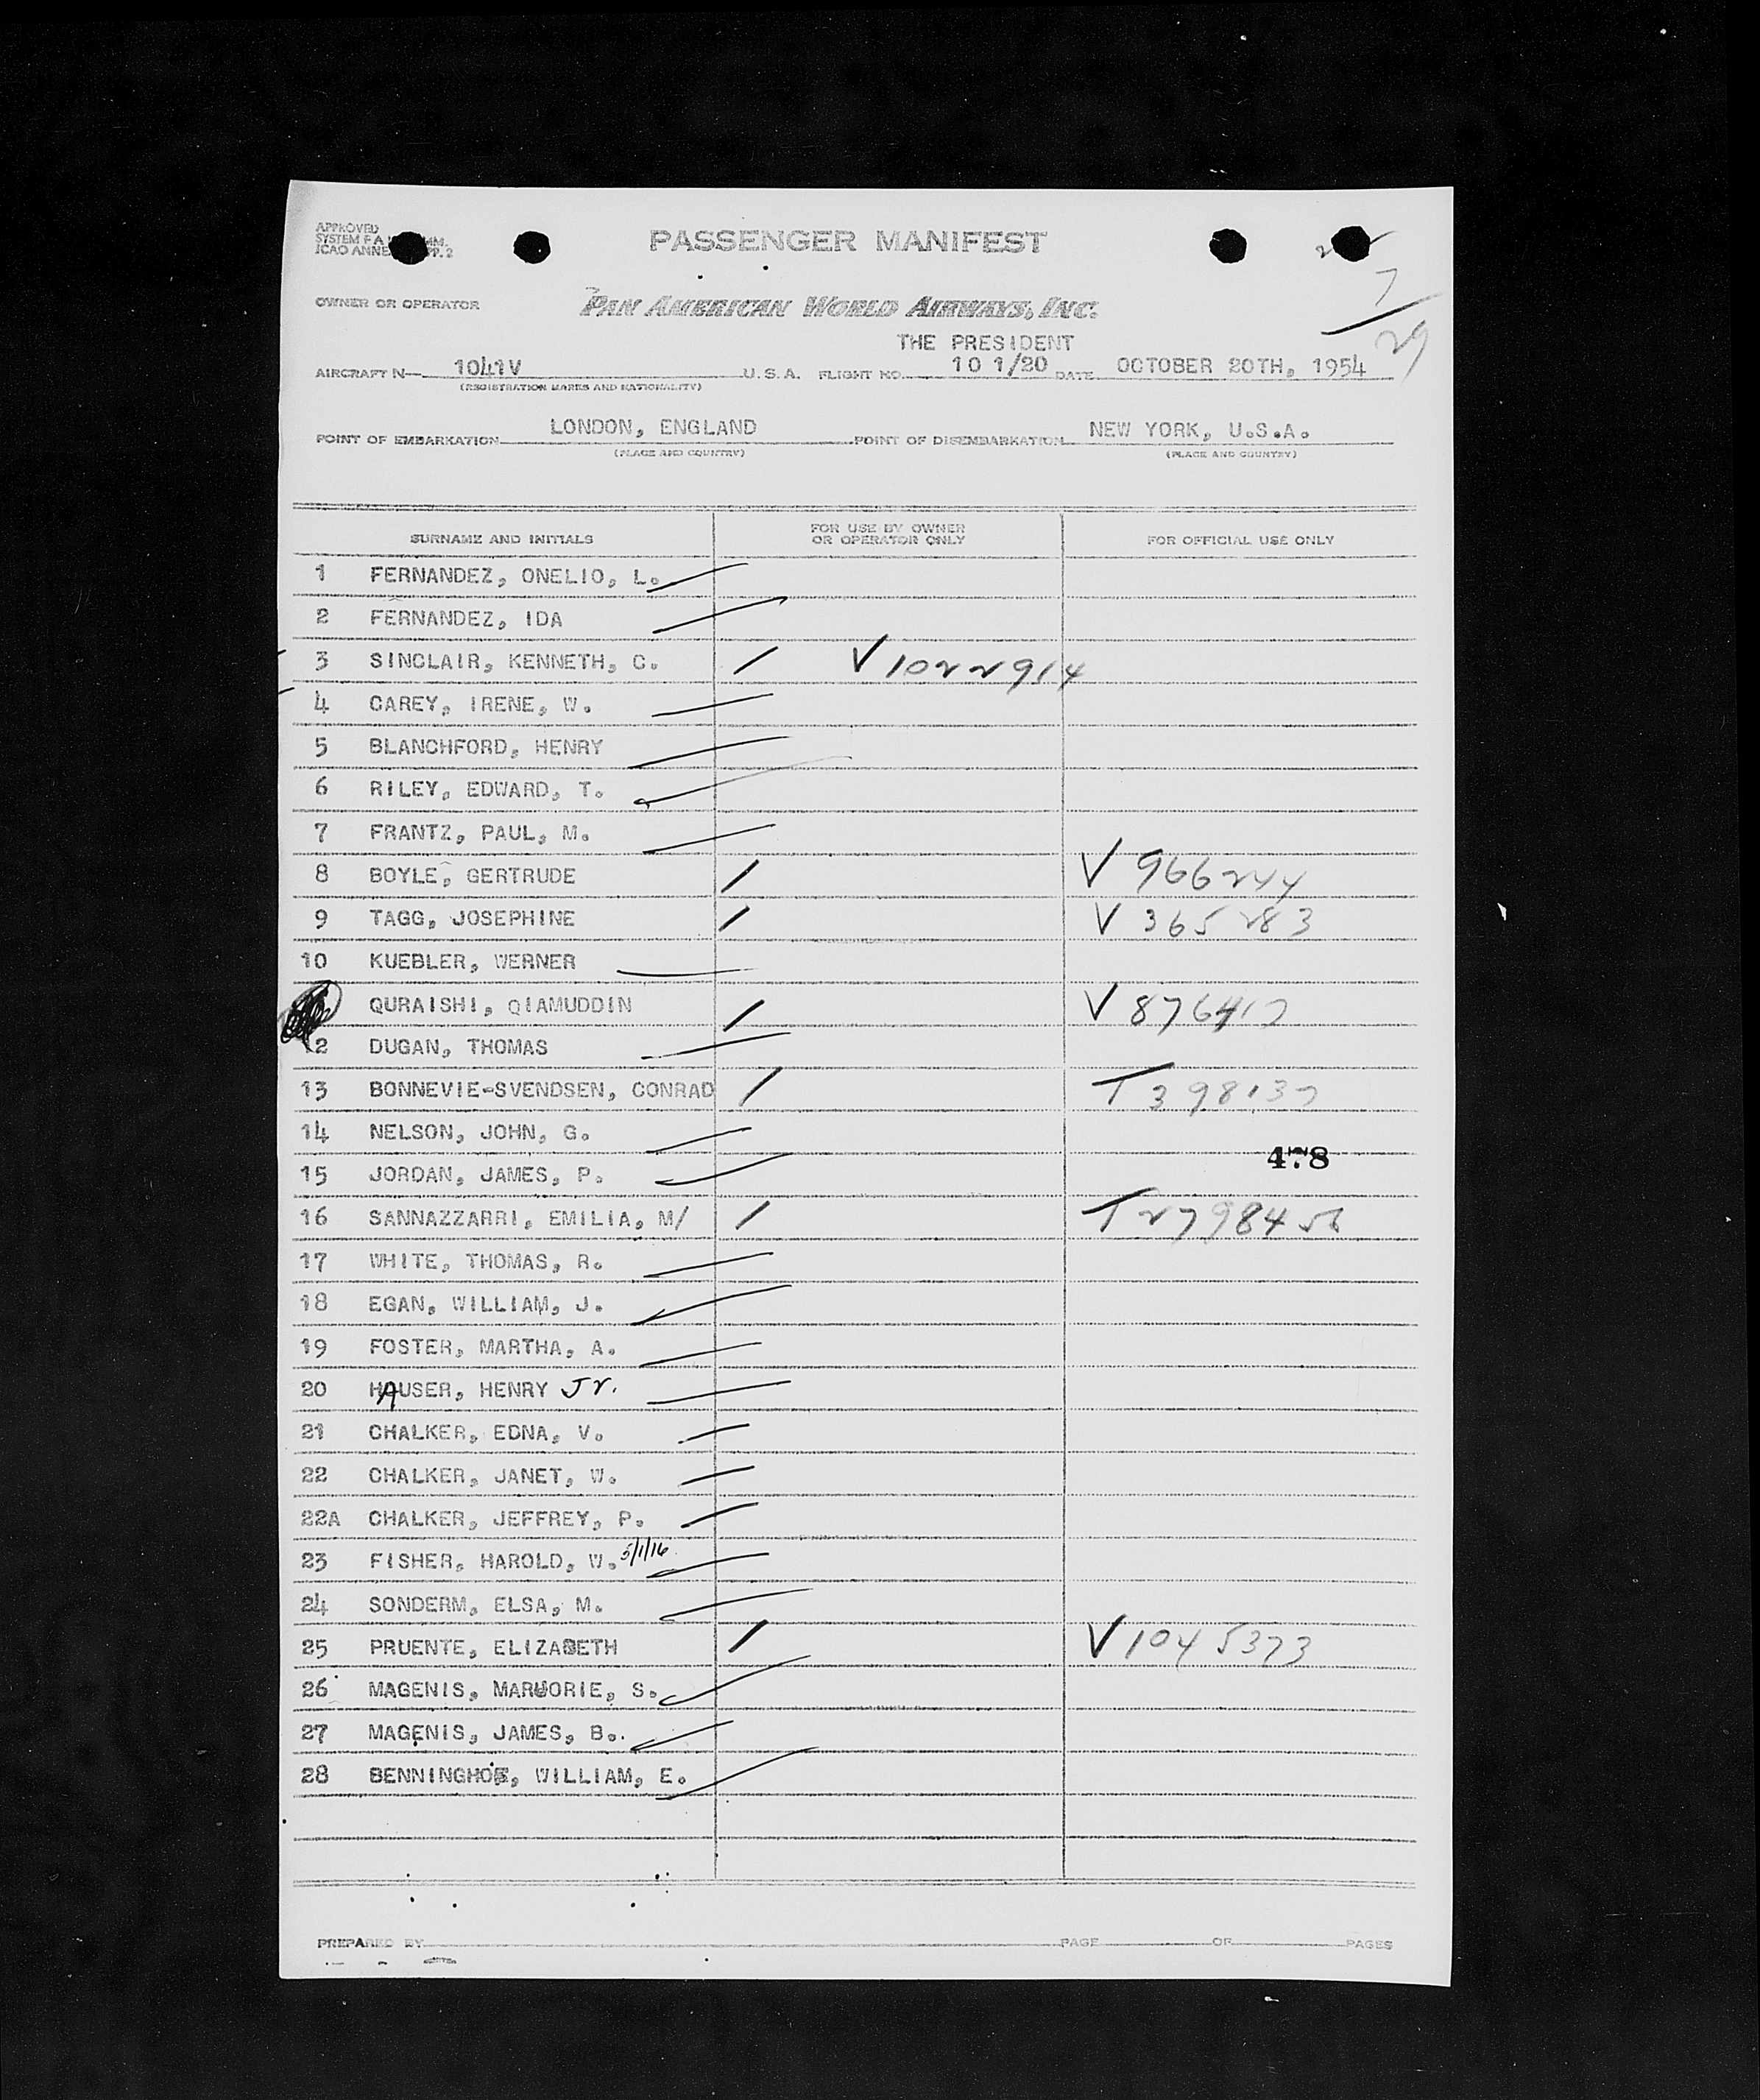 APPROVED
PASSENGER MANIFEST
OWNER OR OPERATOR PAN AMERICAN WORLD AIRWAYS, INC.
THE PRESIDENT
AIRCRAFT N— 1041V U.S.A. FLIGHT NO. 10 1/20 DATE OCTOBER 20TH, 1954
(REGISTRATION MARKS AND NATIONALITY)
7
29
POINT OF EMBARKATION LONDON, ENGLAND POINT OF DISEMBARKATION NEW YORK, U.S.A.
(PLACE AND COUNTRY) (PLACE AND COUNTRY)
SURNAME AND INITIALS FOR USE BY OWNER OR OPERATOR ONLY FOR OFFICIAL USE ONLY
1 FERNANDEZ, ONELIO, L.
2 FERNANDEZ, IDA
3 SINCLAIR, KENNETH, C. / V1022914
4 CAREY, IRENE, W.
5 BLANCHFORD, HENRY
6 RILEY, EDWARD, T.
7 FRANTZ, PAUL, M.
8 BOYLE, GERTRUDE / V 966244
9 TAGG, JOSEPHINE / V 365283
10 KUEBLER, WERNER
QURAISHI, QIAMUDDIN / V 876417
12 DUGAN, THOMAS
13 BONNEVIE-SVENDSEN, CONRAD / T 398137
14 NELSON, JOHN, G.
478
15 JORDAN, JAMES, P.
16 SANNAZZARRI, EMILIA, M/ / T2798456
17 WHITE, THOMAS, R.
18 EGAN, WILLIAM, J.
19 FOSTER, MARTHA, A.
20 HAUSER, HENRY Jr.
21 CHALKER, EDNA, V.
22 CHALKER, JANET, W.
22A CHALKER, JEFFREY, P.
23 FISHER, HAROLD, W. 5/1/16
24 SONDERM, ELSA, M.
25 PRUENTE, ELIZABETH / V1045373
26 MAGENIS, MARJORIE, S.
27 MAGENIS, JAMES, B.
28 BENNINGHOF, WILLIAM, E.
PREPARED BY PAGE OF PAGES